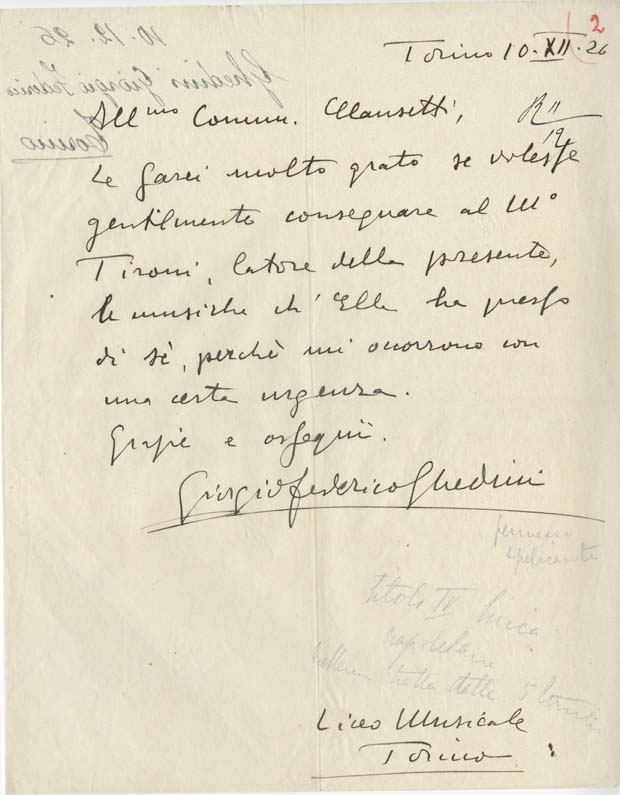 2
Torino 10.XII.26
10.12.26
Ghedini Giorgio Federico
Torino
Ill.mo Comm. Clausetti,
R 11/12
Le sarei molto grato se volesse
gentilmente consegnare al M°
Tironi, latore della presente,
le musiche ch'Ella ha presso
di sè, perchè mi ocorrono con
una certa urgenza.
Grazie e ossequii.
Giorgio Federico Ghedini
titolo IV
napoletane
tratta dalle 5
Liceo Musicale
Torino